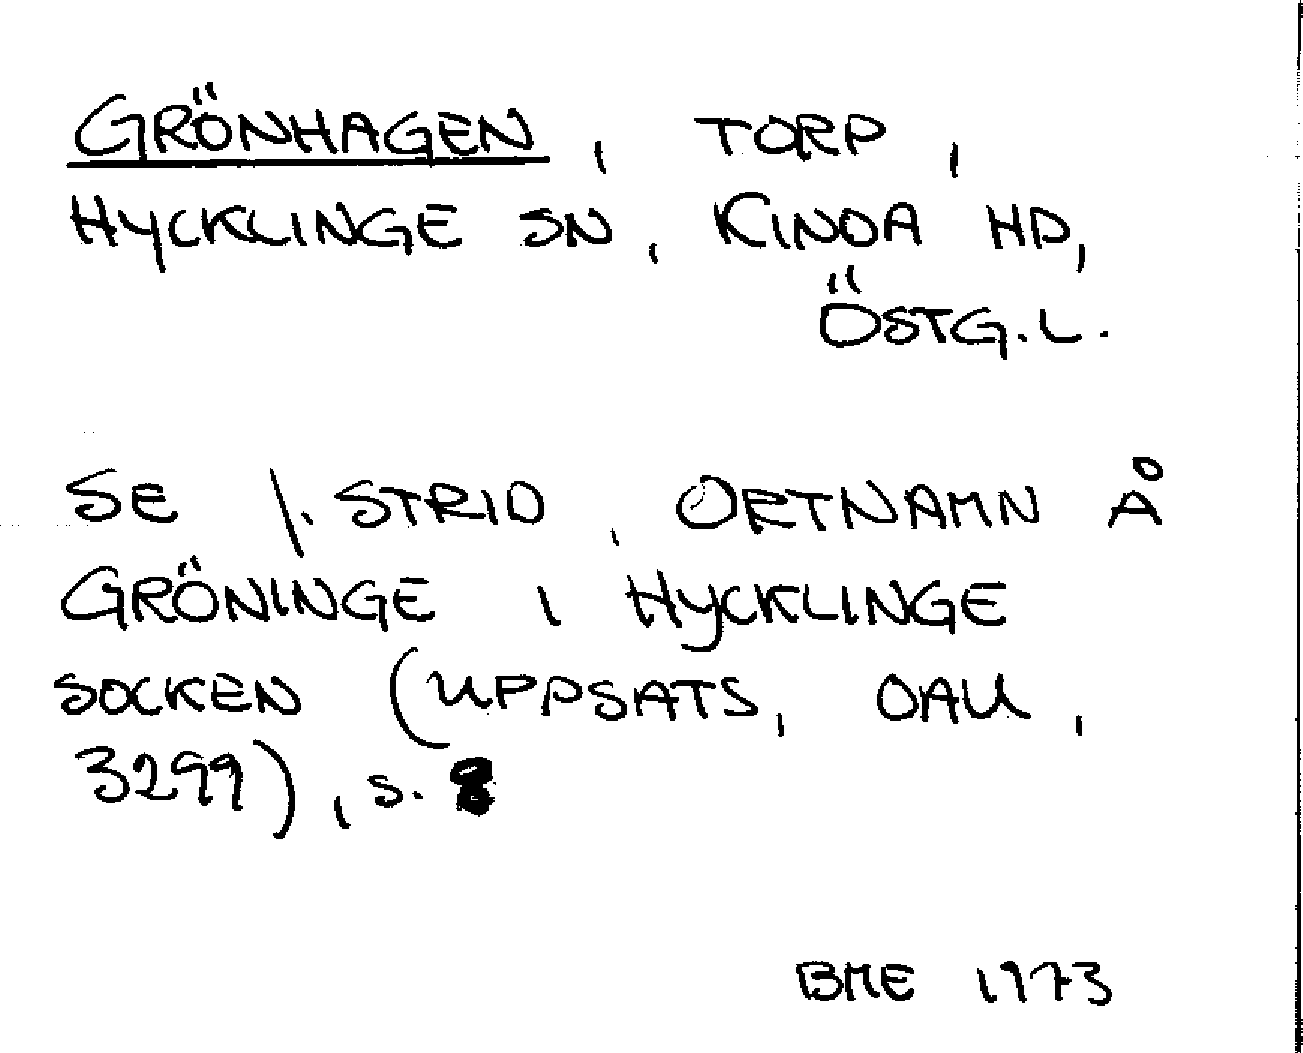 GRÖNHAGEN, TORP,
HYCKLINGE SN, KINDA HD,
ÖSTG.L.
SE I. STRID, ORTNAMN Å
GRÖNINGE I HYCKLINGE
SOCKEN (UPPSATS, OAU,
3299), S. 8
BME 1973